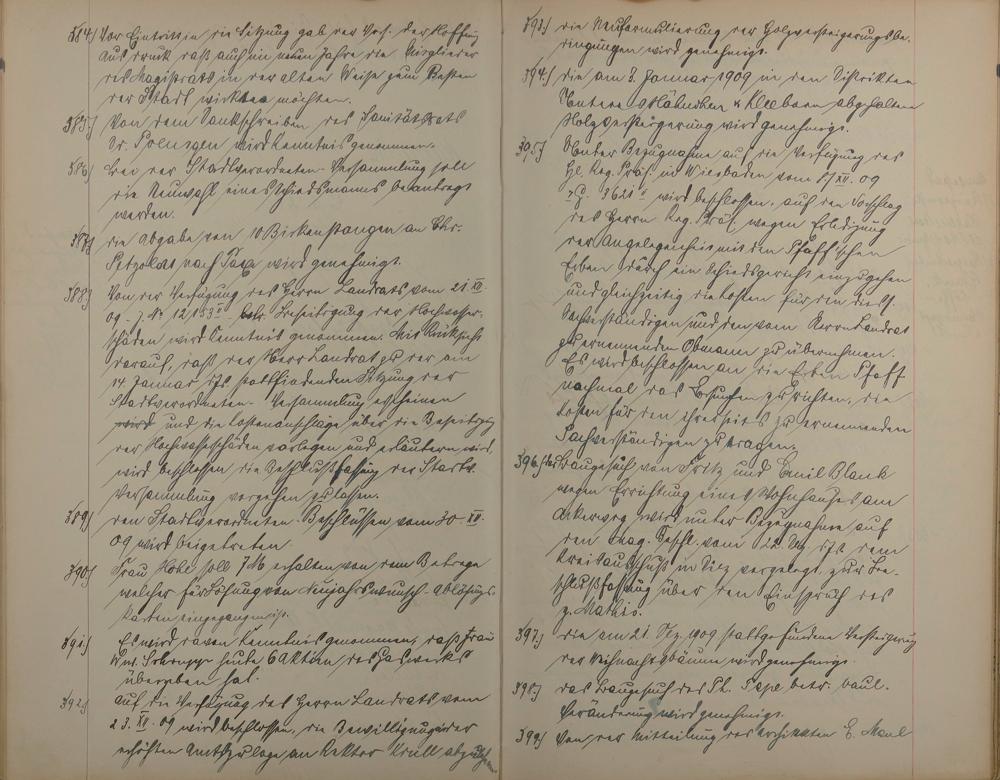 384.) Vor Eintritt in die Sitzung gab der Vors. der Hoffnung
Ausdruck, daß auch im neuen Jahre die Mitglieder
des Magistrats in der alten Weise zum Besten
der Stadt wirken möchten.
385.) Von dem Dankschreiben des Sanitätsrats
Dr. wird Kenntnis genommen.
386.) Bei der Stadtverordneten-Versammlung soll
die Neuwahl eines Schiedsmanns beantragt
werden.
387.) die Abgabe von 10 Birkenstangen an Chr.
nach Taxe wird genehmigt.
388.) Von der Verfügung des Herrn Landrats vom 21. XII.
09. J. No 12153 betr. Beseitigung der Hochwasser-
schäden wird Kenntnis genommen. Mit Rücksicht
darauf, daß der Herr Landrat zu der am
14. Januar ds. Js. stattfindenden Sitzung der
Stadtverordneten-Versammlung erscheinen
wird und die Kostenanschläge über die Beseitigung
der Hochwasserschäden vorlegen und erläutern wird,
wird beschlossen die Beschlußfassung der Stadtv.
Versammlung vorgehen zu lassen.
389.) den Stadtverordneten-Beschlüssen vom 30. XII.
09 wird beigetreten.
390.) Frau Hohl soll 7 M erhalten von dem Betrage
welcher für Lösung von Neujahrswunsch-Ablösungs-
karten eingegangen ist.
391.) Es wird davon Kenntnis genommen, daß Frau
Ww. heute 6 Aktien des Gaswerks
übergeben hat.
392.) auf die Verfügung des Herrn Landrats vom
23. XII. 09 wird beschlossen, die Bewilligung der
erhöhten Amtszulage an Rektor Krull abzulehnen.
393.) die Neuformulierung der Holzversteigerungsbe-
dingungen wird genehmigt.
394.) die am 3. Januar 1909 in den Distrikten
Hintere Hähnchen & Kleeborn abgehaltene
Holzversteigerung wird genehmigt.
395.) Unter Bezugnahme auf die Verfügung des
H. Reg. Präs. in Wiesbaden vom 17. XII. 09
3621 wird beschlossen, auf den Vorschlag
des Herrn Reg. Präs. wegen Erledigung
der Angelegenheit mit den Pfaff'schen
Erben durch ein Schiedsgericht einzugehen
und gleichzeitig die Kosten für den dies.
Sachverständigen und den vom Herrn Landrat
zu ernennenden Obmann zu übernehmen.
Es wird beschlossen an die Erben Pfaff
nochmal das Ersuchen zu richten, die
Kosten für den ihrerseits zu ernennenden
Sachverständigen zu tragen.
396.) Das Baugesuch von Fritz und Emil Blank
wegen Errichtung eines Wohnhauses am
Ackerweg wird unter Bezugnahme auf
den Mag. Beschl. vom 22. ds. Js. dem
Kreisausschuß in Diez vorgelegt zur Be-
schlußfassung über den Einspruch des
397.) die am 21. Dez. 1909 stattgefundene Versteigerung
der Weihnachtsbäume wird genehmigt.
398.) das Baugesuch des Ph. Pape betr. baul.
Veränderung wird genehmigt.
399.) Von der Mitteilung des Architekten E. Maul